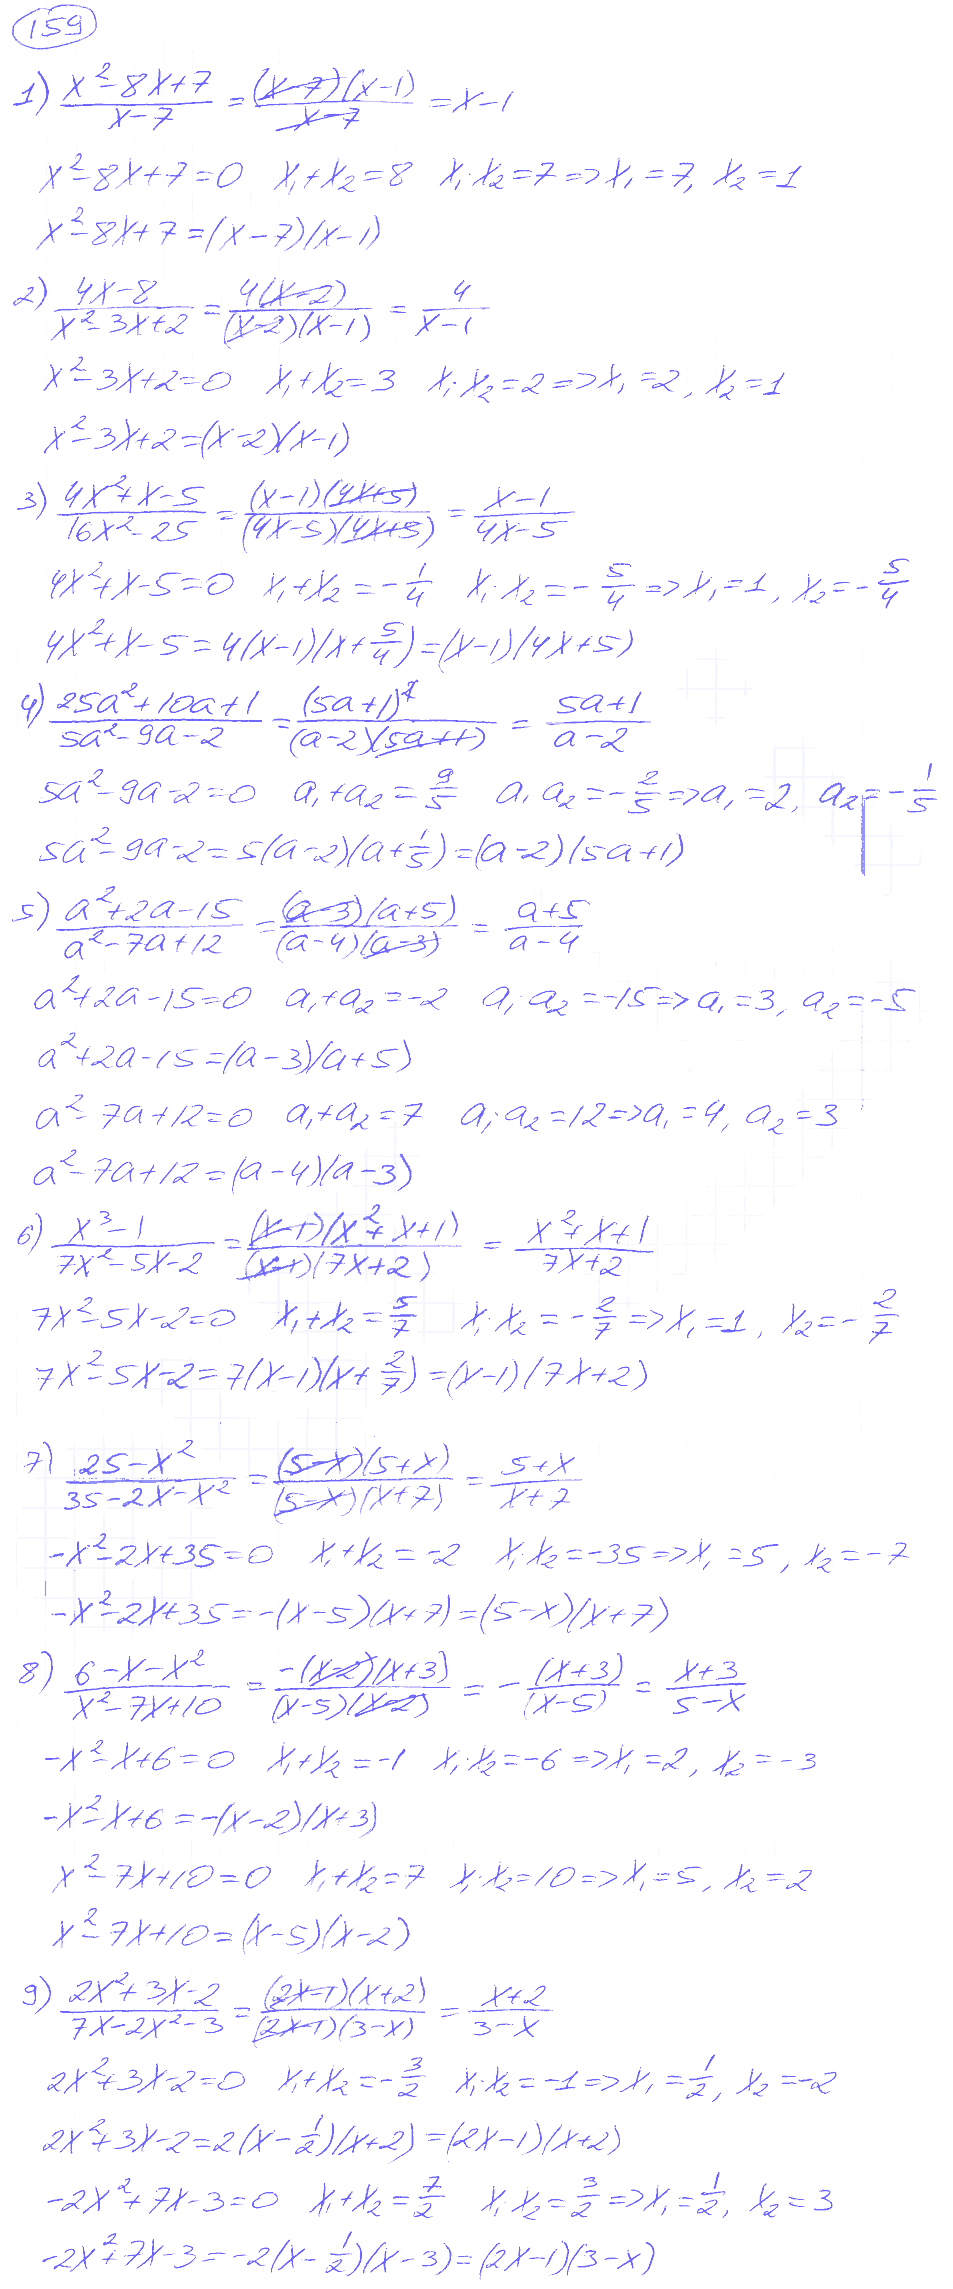 159
1) (x²-8x+7)/(x-7) = ((x-7)(x-1))/(x-7) = x-1
x²-8x+7=0 x₁+x₂=8 x₁·x₂=7=>x₁=7, x₂=1
x²-8x+7=(x-7)(x-1)
2) (4x-8)/(x²-3x+2) = (4(x-2))/((x-2)(x-1)) = 4/(x-1)
x²-3x+2=0 x₁+x₂=3 x₁·x₂=2=>x₁=2, x₂=1
x²-3x+2=(x-2)(x-1)
3) (4x²+x-5)/(16x²-25) = ((x-1)(4x+5))/((4x-5)(4x+5)) = (x-1)/(4x-5)
4x²+x-5=0 x₁+x₂=-1/4 x₁·x₂=-5/4=>x₁=1, x₂=-5/4
4x²+x-5=4(x-1)(x+5/4)=(x-1)(4x+5)
4) (25a²+10a+1)/(5a²-9a-2) = (5a+1)²/((a-2)(5a+1)) = (5a+1)/(a-2)
5a²-9a-2=0 a₁+a₂=9/5 a₁a₂=-2/5=>a₁=2, a₂=-1/5
5a²-9a-2=5(a-2)(a+1/5)=(a-2)(5a+1)
5) (a²+2a-15)/(a²-7a+12) = ((a-3)(a+5))/((a-4)(a-3)) = (a+5)/(a-4)
a²+2a-15=0 a₁+a₂=-2 a₁·a₂=-15=>a₁=3, a₂=-5
a²+2a-15=(a-3)(a+5)
a²-7a+12=0 a₁+a₂=7 a₁·a₂=12=>a₁=4, a₂=3
a²-7a+12=(a-4)(a-3)
6) (x³-1)/(7x²-5x-2) = ((x-1)(x²+x+1))/((x-1)(7x+2)) = (x²+x+1)/(7x+2)
7x²-5x-2=0 x₁+x₂=5/7 x₁·x₂=-2/7=>x₁=1, x₂=-2/7
7x²-5x-2=7(x-1)(x+2/7)=(x-1)(7x+2)
7) (25-x²)/(35-2x-x²) = ((5-x)(5+x))/((5-x)(x+7)) = (5+x)/(x+7)
-x²-2x+35=0 x₁+x₂=-2 x₁·x₂=-35=>x₁=5, x₂=-7
-x²-2x+35=-(x-5)(x+7)=(5-x)(x+7)
8) (6-x-x²)/(x²-7x+10) = (-(x-2)(x+3))/((x-5)(x-2)) = -(x+3)/(x-5) = (x+3)/(5-x)
-x²-x+6=0 x₁+x₂=-1 x₁·x₂=-6=>x₁=2, x₂=-3
-x²-x+6=-(x-2)(x+3)
x²-7x+10=0 x₁+x₂=7 x₁·x₂=10=>x₁=5, x₂=2
x²-7x+10=(x-5)(x-2)
9) (2x²+3x-2)/(7x-2x²-3) = ((2x-1)(x+2))/((2x-1)(3-x)) = (x+2)/(3-x)
2x²+3x-2=0 x₁+x₂=-3/2 x₁·x₂=-1=>x₁=1/2, x₂=-2
2x²+3x-2=2(x-1/2)(x+2)=(2x-1)(x+2)
-2x²+7x-3=0 x₁+x₂=7/2 x₁·x₂=3/2=>x₁=1/2, x₂=3
-2x²+7x-3=-2(x-1/2)(x-3)=(2x-1)(3-x)